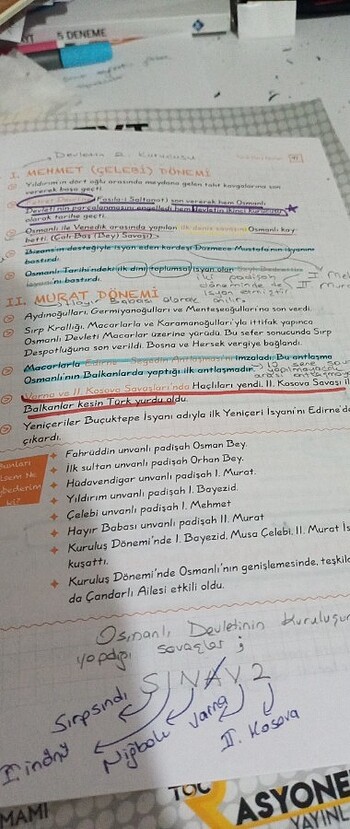 5 DENEME
Devletin 2. Kurucusu
I. MEHMET (ÇELEBİ) DÖNEMİ
Yıldırım'ın dört oğlu arasında meydana gelen taht kavgalarına son
vererek başa geçti.
Fetret Devri (Fasıla-i Saltanat) son vererek hem Osmanlı
Devleti'nin parçalanmasını engelledi hem devletin ikinci kurucusu
olarak tarihe geçti.
Osmanlı ile Venedik arasında yapılan ilk deniz savaşını Osmanlı kay
betti. (Çalı Bey Savaşı)
Bizans'ın desteğiyle isyan eden kardeşi Düzmece Mustafa'nın isyanını
bastırdı.
Osmanlı Tarihi'ndeki ilk dini toplumsal isyan olan Şeyh Bedrettin
nı bastırdı.
iki padişah
döneminde de
isyan etmişti
I Meh
II Mura
II. MURAT DÖNEMİ
Babası olarak anılır.
Aydınoğulları, Germiyanoğulları ve Menteşeoğulları'na son verdi.
Sırp Krallığı, Macarlarla ve Karamanoğulları'yla ittifak yapınca
Osmanlı Devleti Macarlar üzerine yürüdü. Bu sefer sonucunda Sırp
Despotluğuna son verildi. Bosna ve Hersek vergiye bağlandı.
Macarlarla Edirne - Segedin Antlaşması'nı imzaladı. Bu antlaşma
Osmanlı'nın Balkanlarda yaptığı ilk antlaşmadır.
Varna ve II. Kosova Savaşları'nda Haçlıları yendi. II. Kosova Savaşı il
Balkanlar kesin Türk yurdu oldu.
Yeniçeriler Buçuktepe İsyanı adıyla ilk Yeniçeri İsyanı'nı Edirne'de
çıkardı.
Bunları
Fahrüddin unvanlı padişah Osman Bey.
İlk sultan unvanlı padişah Orhan Bey.
Hüdavendigar unvanlı padişah I. Murat.
Yıldırım unvanlı padişah I. Bayezid.
Çelebi unvanlı padişah I. Mehmet
Hayır Babası unvanlı padişah II. Murat
Kuruluş Dönemi'nde I. Bayezid, Musa Çelebi, II. Murat İs
kuşattı.
Kuruluş Dönemi'nde Osmanlı'nın genişlemesinde, teşkila
da Çandarlı Ailesi etkili oldu.
Osmanlı Devletinin Kuruluşun
yaptığı savaşlar ;
S I N A V 2
Sırpsındı
I. inönü
Niğbolu
Varna
II. Kosova
MAMI
RASYONE
YAYINL